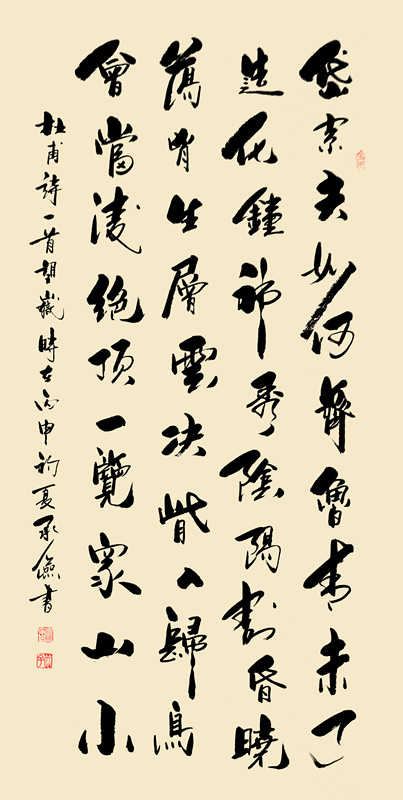 岱宗夫如何齊魯青未了
造化鍾神秀陰陽割昏曉
蕩胸生層雲決眥入歸鳥
會當凌絕頂一覽眾山小
杜甫詩一首望嶽時在丙申初夏承書